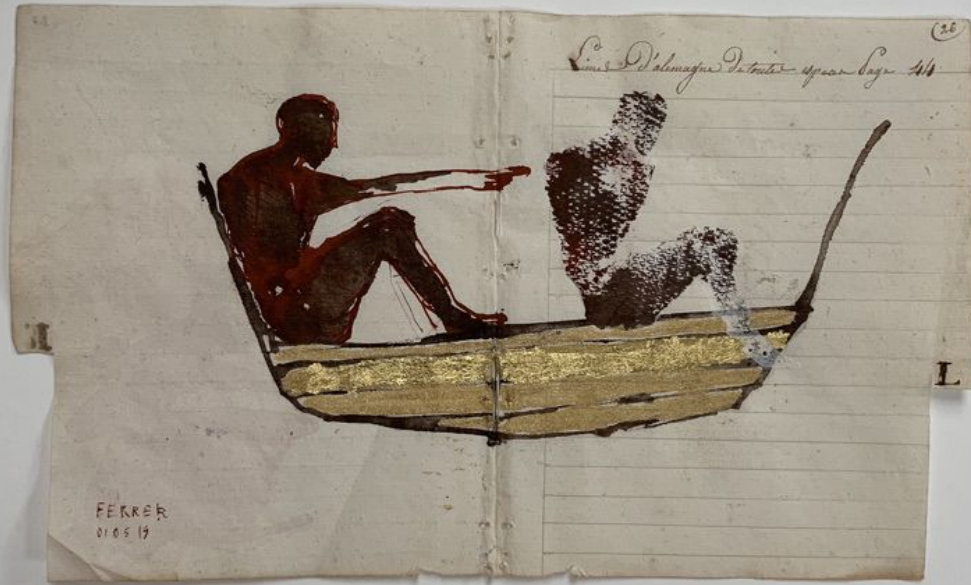 (26)
Limes D'alemagne De toutes espece Page 44
L
FERRER
01 05 19